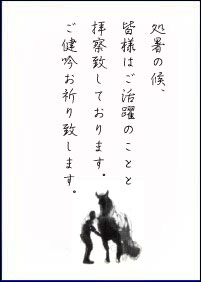 処暑の候、
皆様はご活躍のことと
拝察致しております。
ご健吟お祈り致します。